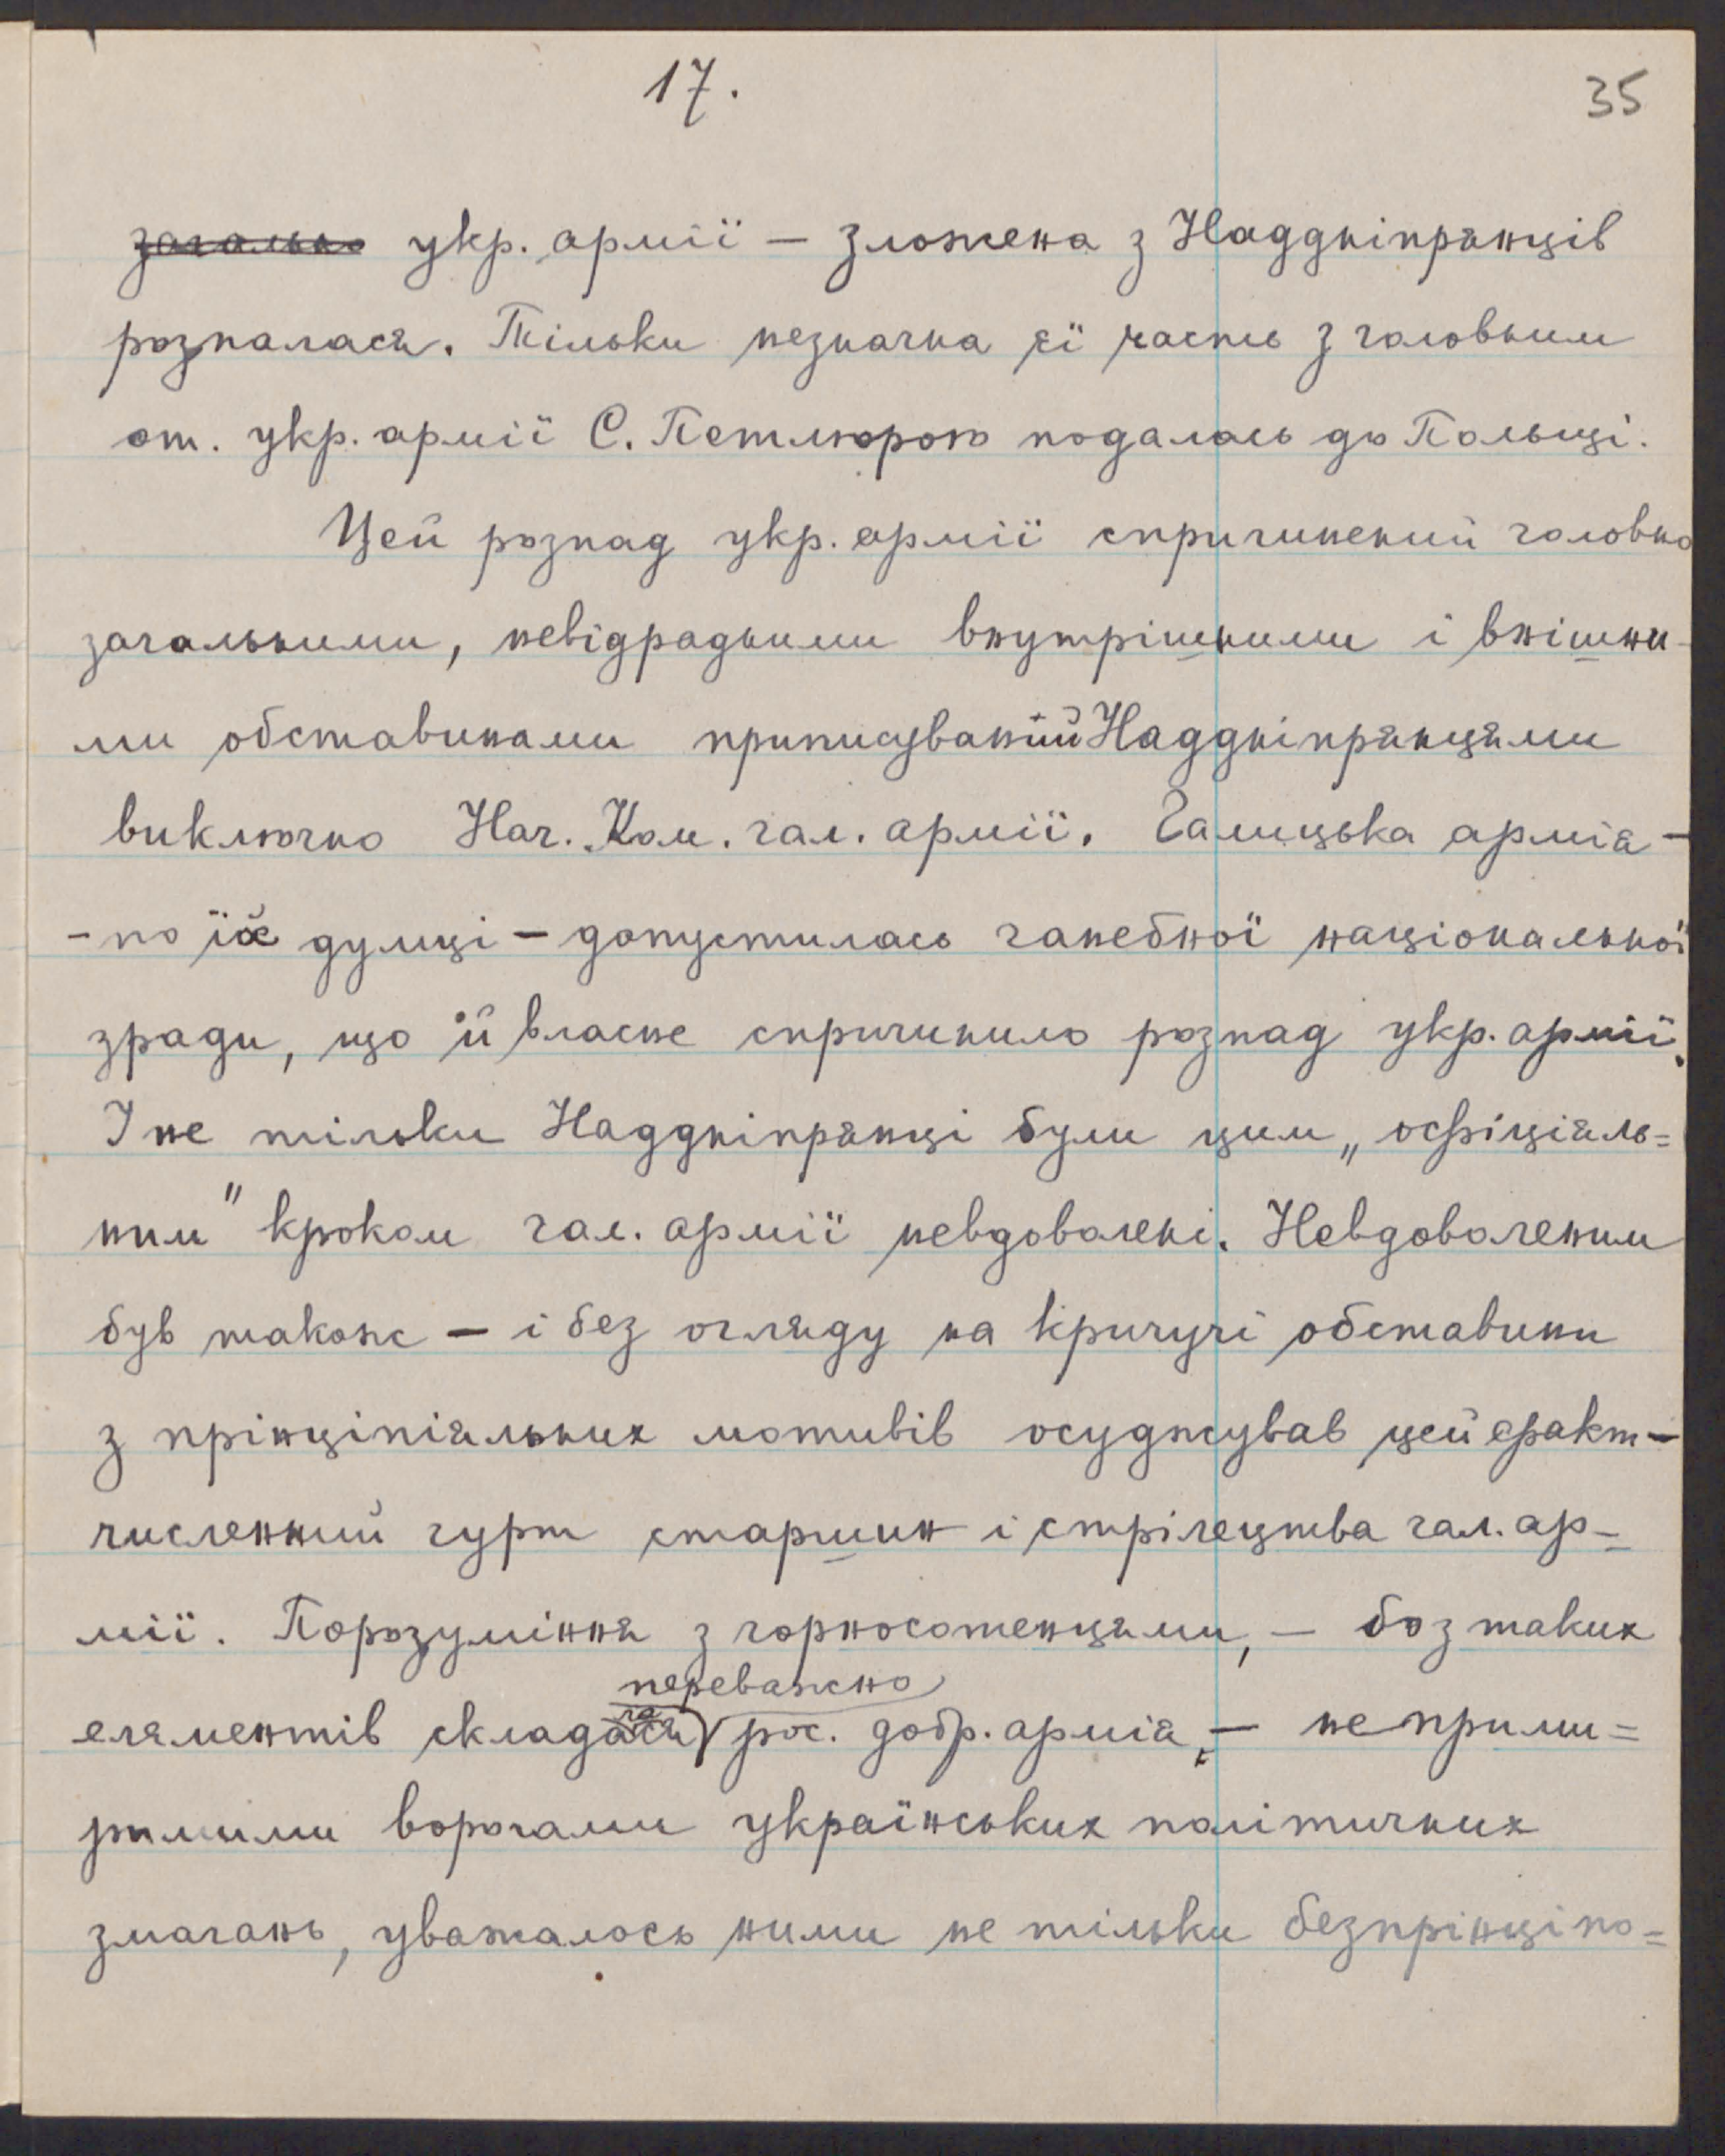 17.
35
загально укр. армії — зложена з Наддніпрянців
розпалася. Тільки незначна її часть з головним
от. укр. армії С. Петлюрою подалась до Польщі.
Цей розпад укр. армії спричинений головно
загальними, невідрадними внутрішними і внішни-
ми обставинами приписуваний Наддніпрянцями
виключно Нач. Ком. гал. армії. Галицька армія —
- по їх думці — допустилась ганебної національної
зради, що й власне спричинило розпад укр. армії.
І не тільки Наддніпрянці були цим „офіціяль=
ним" кроком гал. армії невдоволені. Невдоволеним
був також — і без огляду на кричучі обставини
з прінціпіяльних мотивів осуджував цей факт —
численний гурт старшин і стрілецтва гал. ар-
мії. Порозуміння з чорносотенцями, — бо з таких
переважно
елементів складалася рос. добр. армія, — неприми=
римими ворогами українських політичних
змагань, уважалось ними не тільки безпрінціпо=